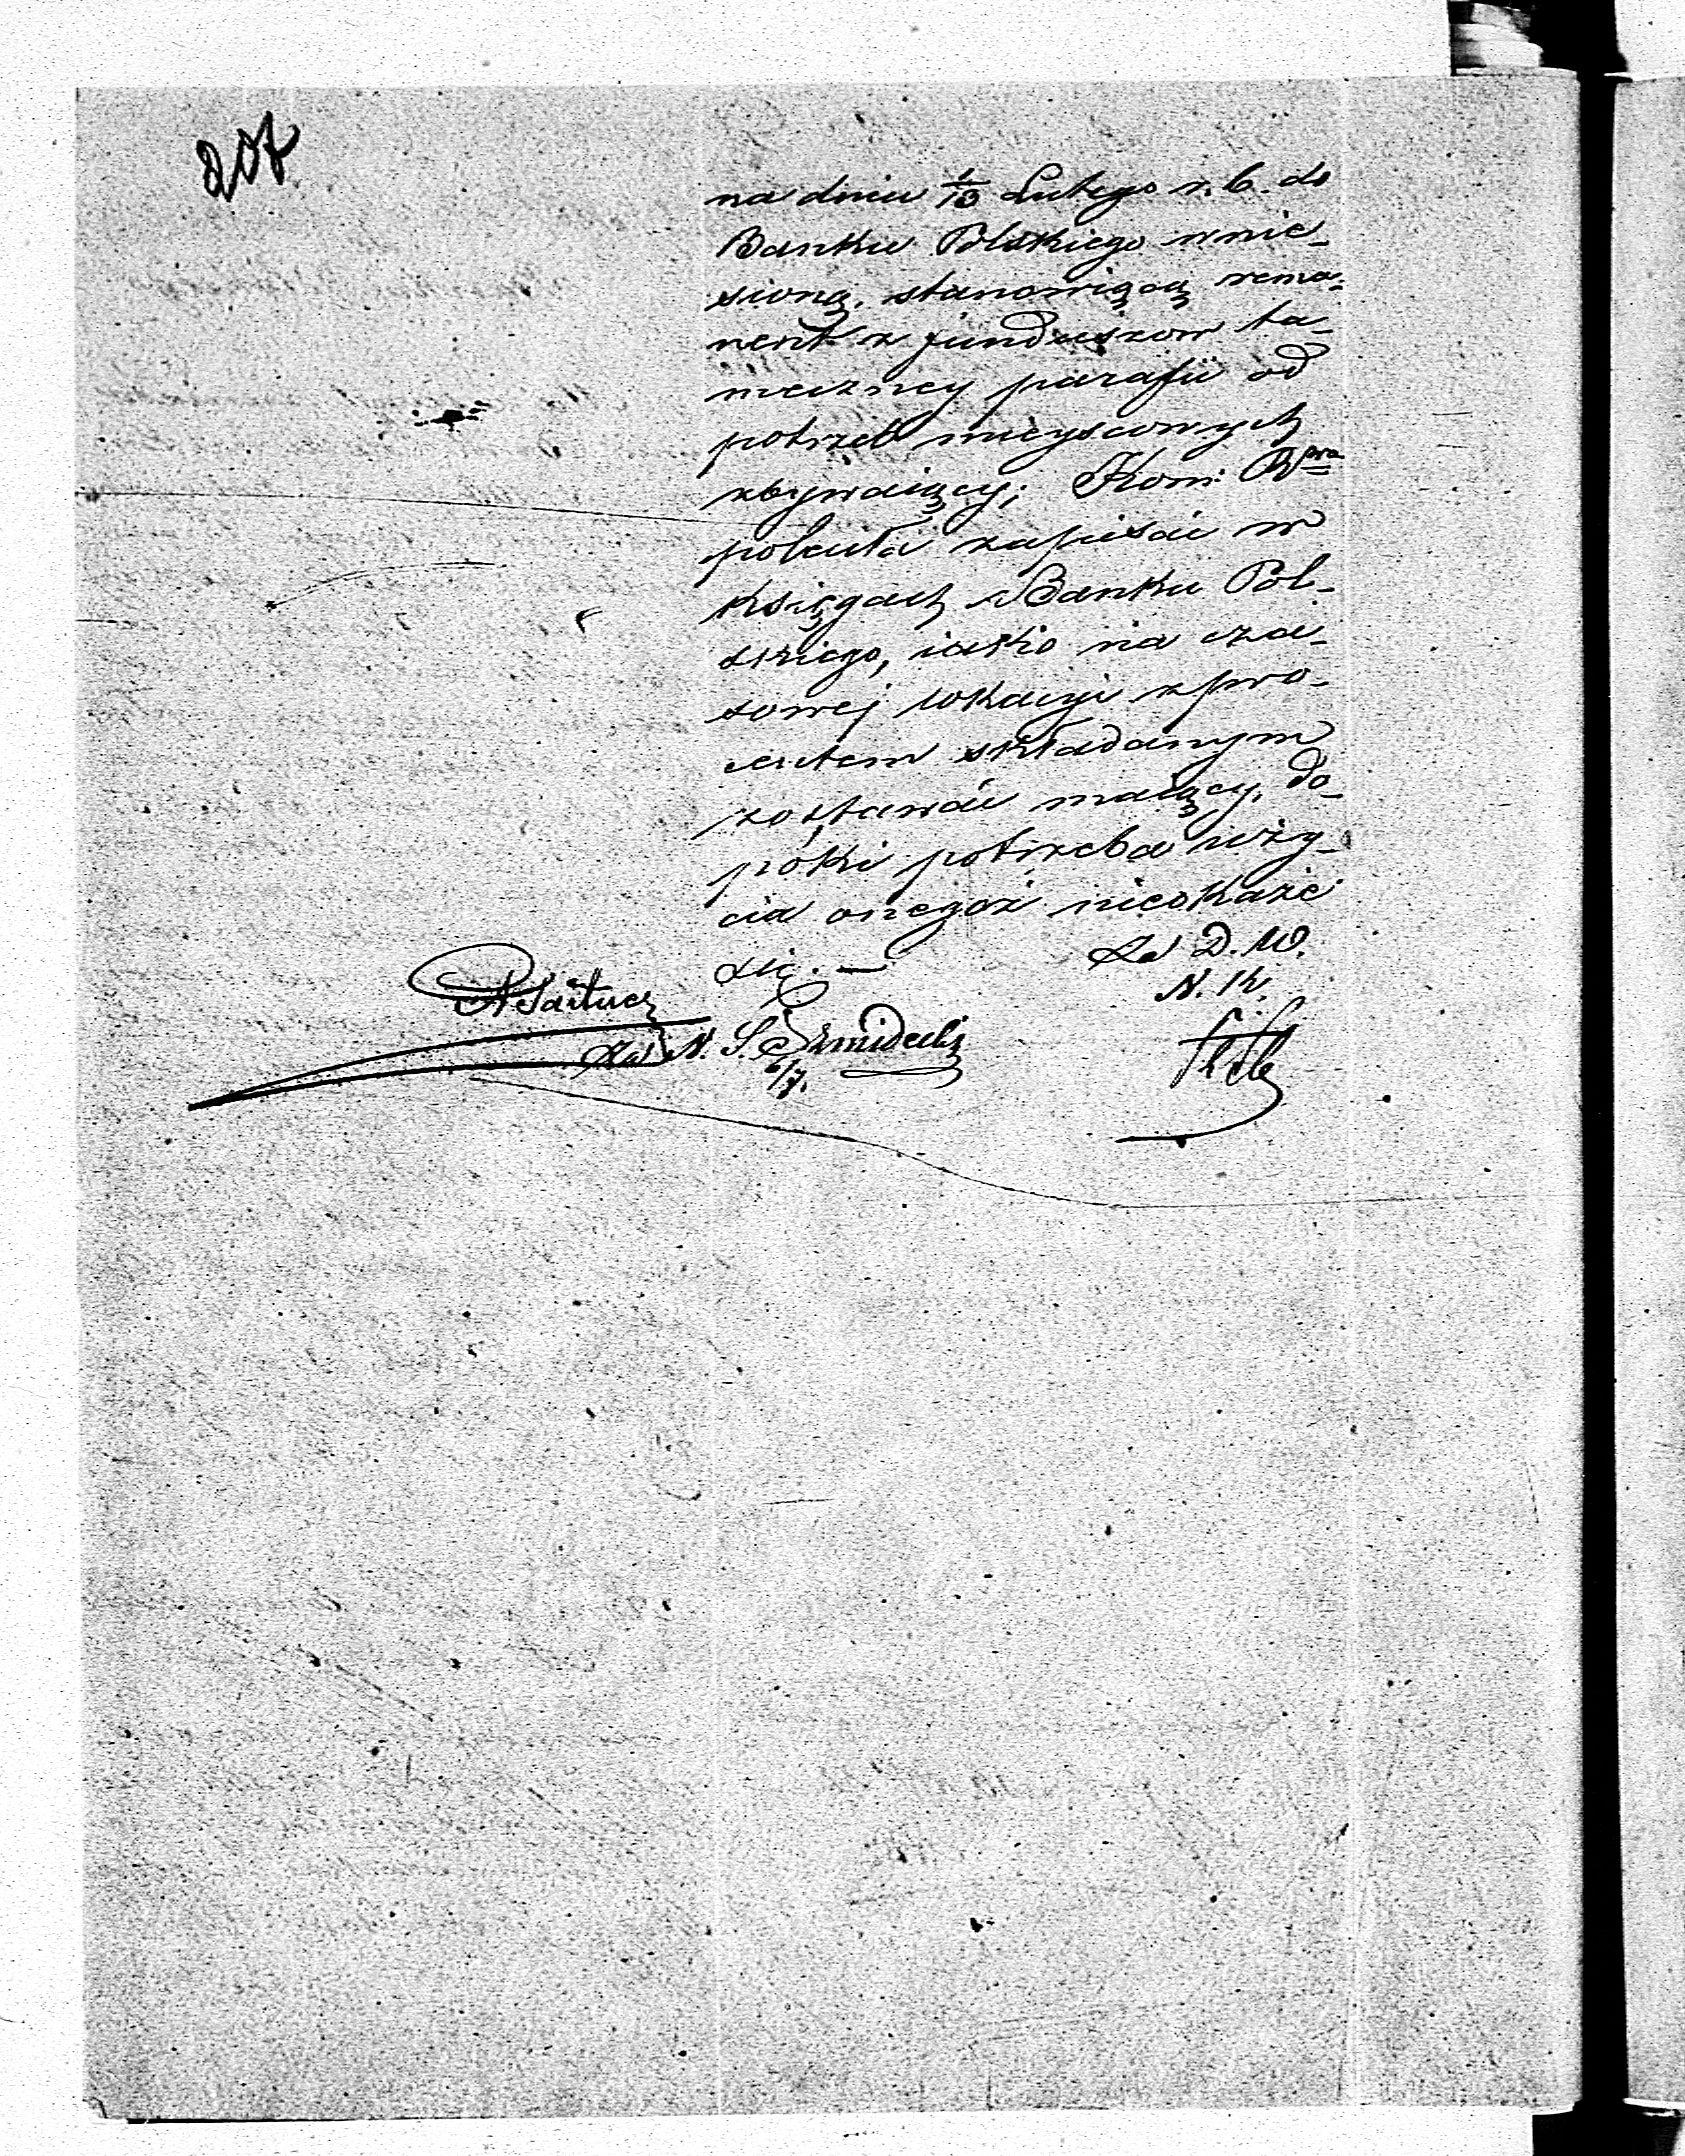 207
na dniu 1/13 Lutego r. b. do
Banku Polskiego wnie-
sioną, stanowiącą rema-
nent z funduszow ta-
meczney parafii od
potrzeb mieyscowych
zbywaiący; Kom: R
poleciła zapisać w
Księgach Banku Pol-
skiego, iako na cza-
sowej lokacyi z pro-
centem składanym
zostawać maiący, do-
póki potrzeba uży-
cia onegoż nieokaże
się. —
Za D. W.
N. K.
Za N. S.